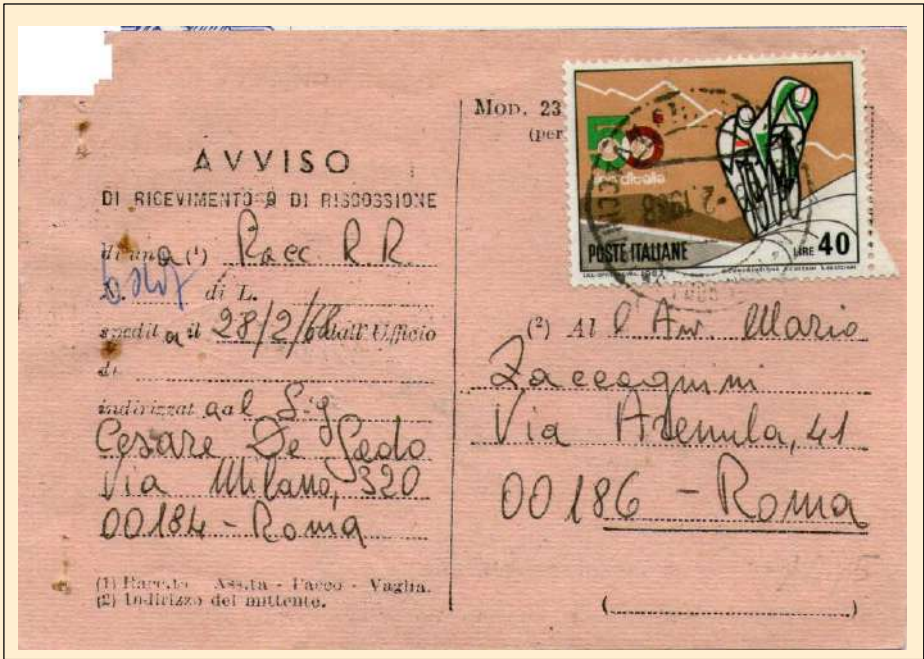 AVVISO
DI RICEVIMENTO O DI RISCOSSIONE
di una (1) Racc R.R.
di L.
spedita il 28/2/68 dall'Ufficio
di
indirizzata al Sig
Cesare De
Via Milano, 320
00184 - Roma
(1) Racc.ta - Ass.ta - Pacco - Vaglia.
(2) Indirizzo del mittente.
MOD. 23
(per
50
giro d'italia
POSTE ITALIANE
LIRE 40
(2) Al l'Avv. Mario
Zaccagnini
Via Arenula, 41
00186 - Roma
(
)